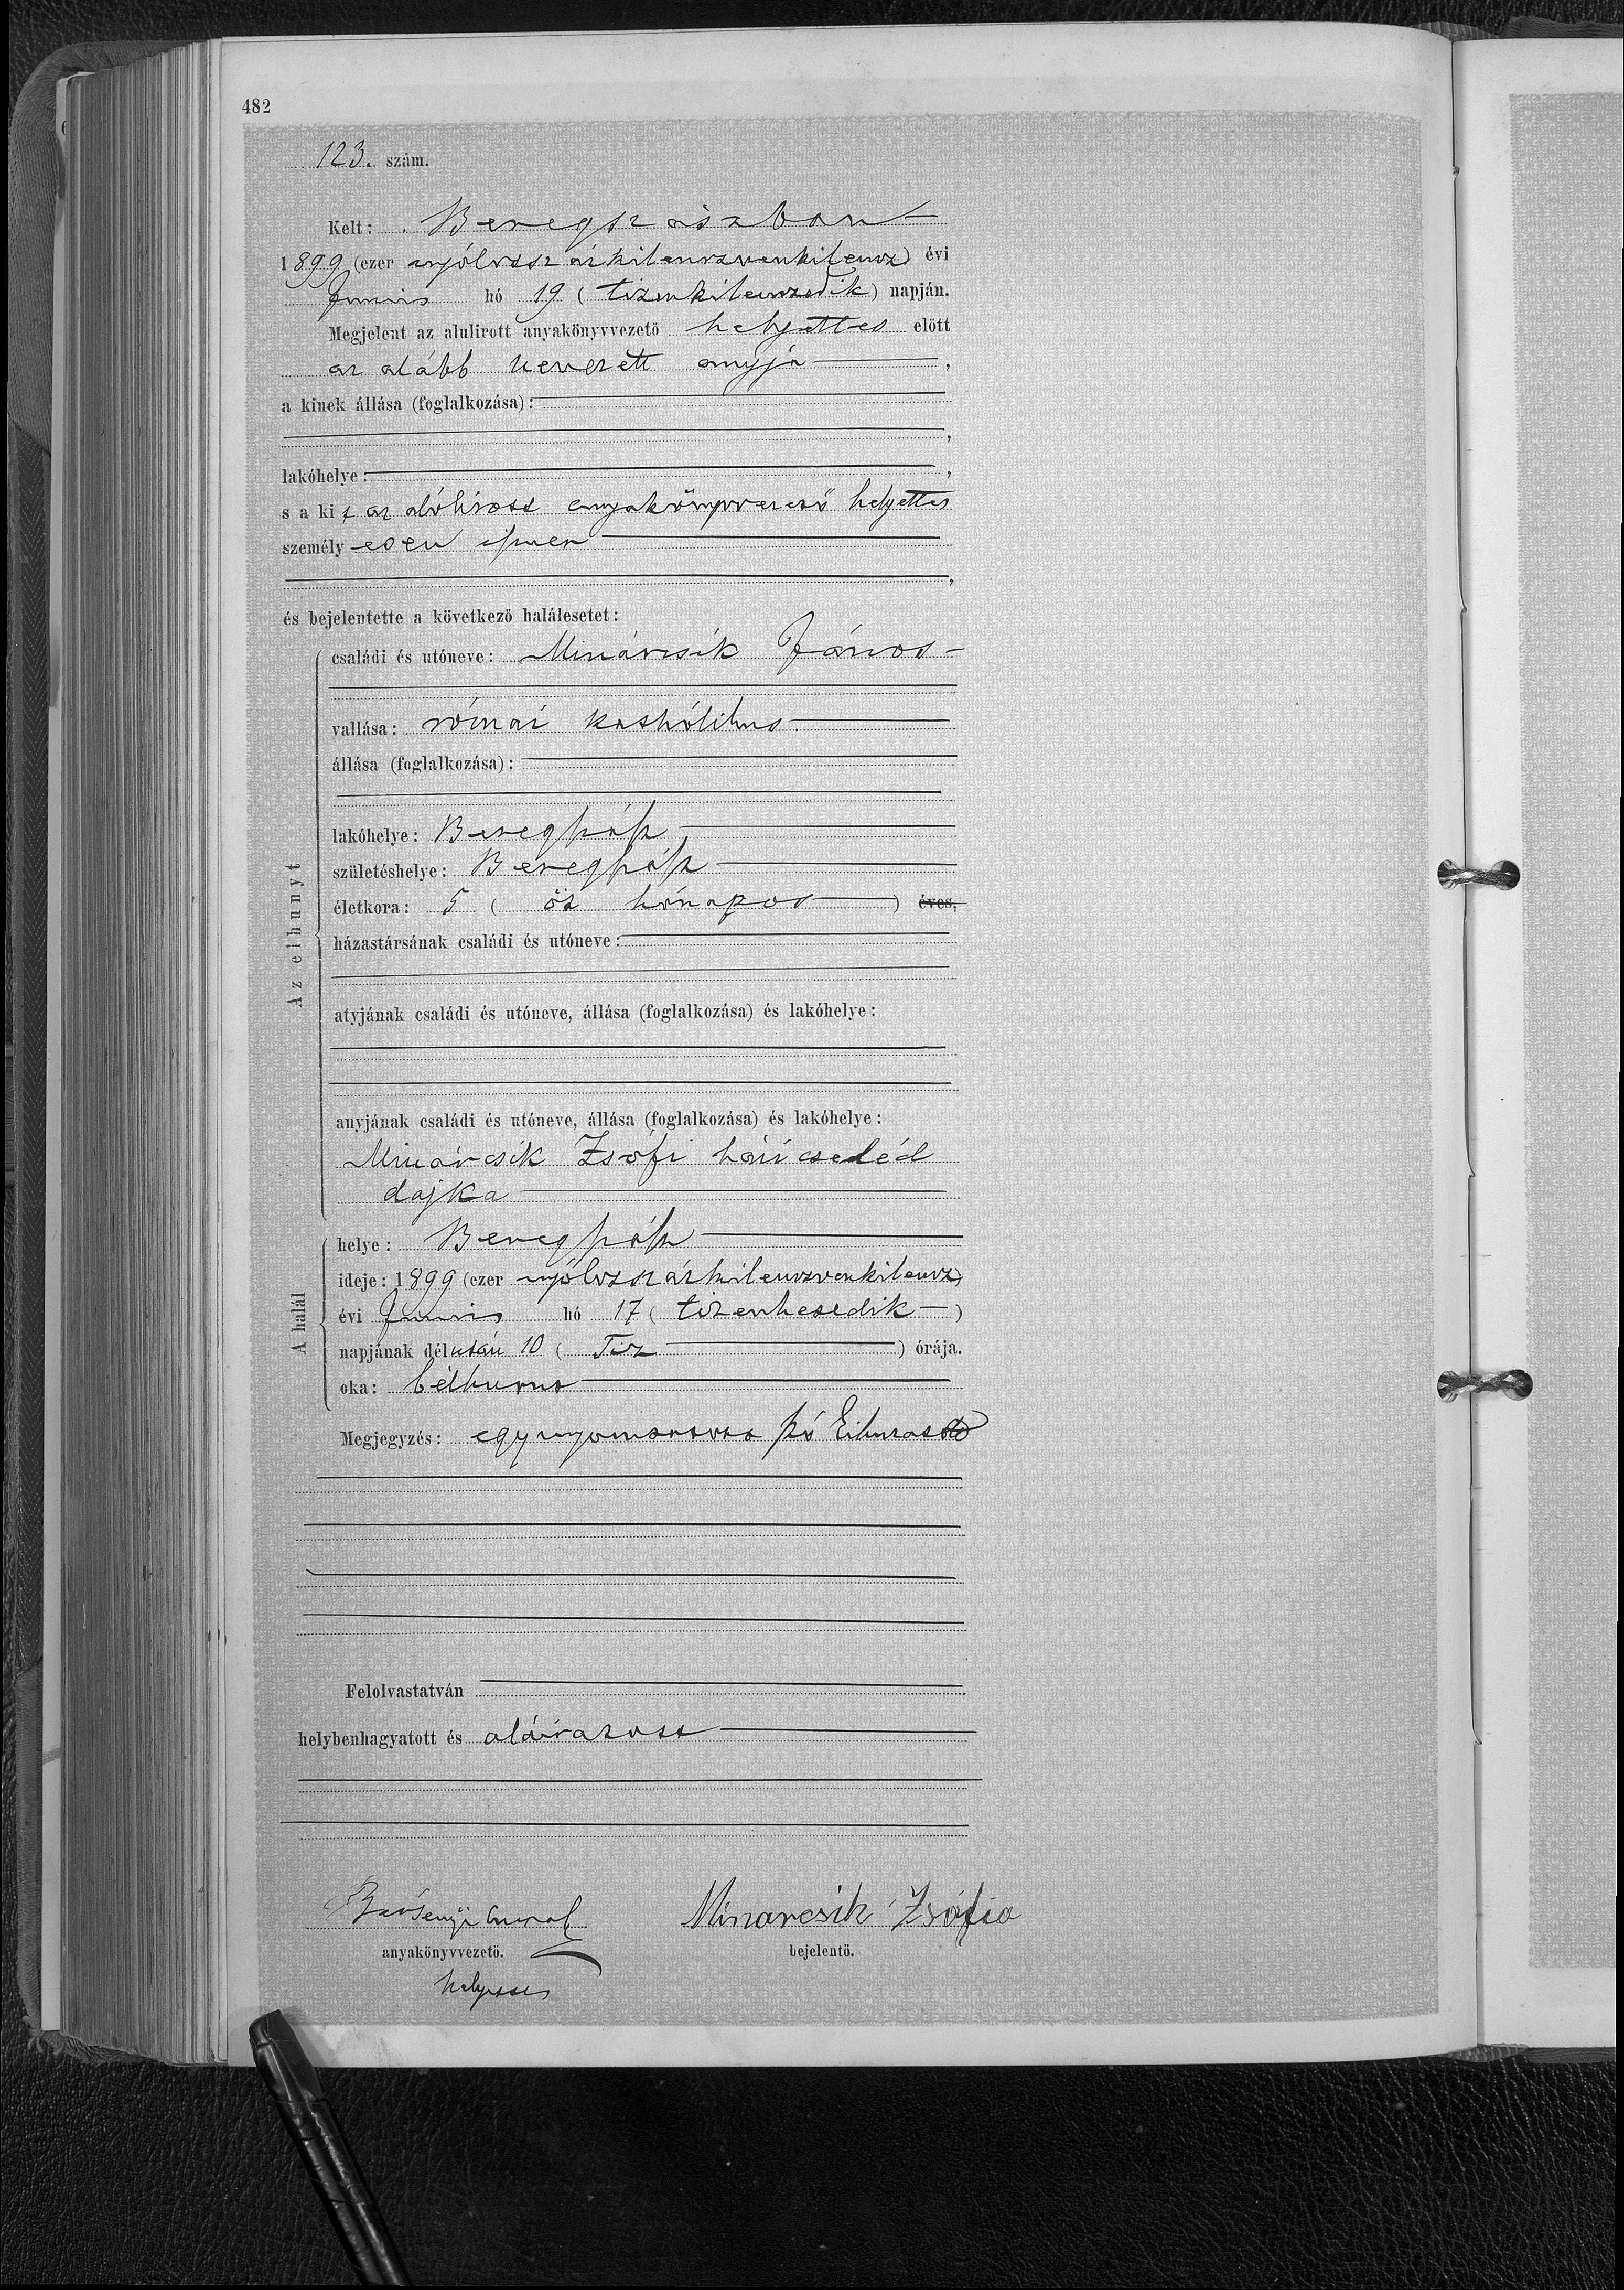 482
123. szám.
Kelt: Beregszászban
1899 (ezer nyólczszázkilenczvenkilencz) évi
Junius hó 19 (tizenkilenczedik) napján.
Megjelent az alulirott anyakönyvvezető helyettes előtt
az alább nevezett anyja,
a kinek állása (foglalkozása):
lakóhelye:
s a kit az alólirott anyakönyvvezető helyettes
személyesen ismer
és bejelentette a következő halálesetet:
Az elhunyt
családi és utóneve: Minárcsik János
vallása: római kathólikus
állása (foglalkozása):
lakóhelye: Beregszász,
születéshelye: Beregszász
életkora: 5 (öt hónapos) éves,
házastársának családi és utóneve:
atyjának családi és utóneve, állása (foglalkozása) és lakóhelye:
anyjának családi és utóneve, állása (foglalkozása) és lakóhelye:
Minárcsik Zsófi házi cseléd
dajka
A halál
helye: Beregszász
ideje: 1899 (ezer nyólczszázkilenczvenkilencz)
évi Junius hó 17 (tizenhetedik)
napjának délután 10 (Tiz) órája.
oka: bélhurut
Megjegyzés: egy nyomtatott szó
Felolvastatván
helybenhagyatott és aláiratott
anyakönyvvezető.
helyettes
Minarcsik Zsófia
bejelentő.